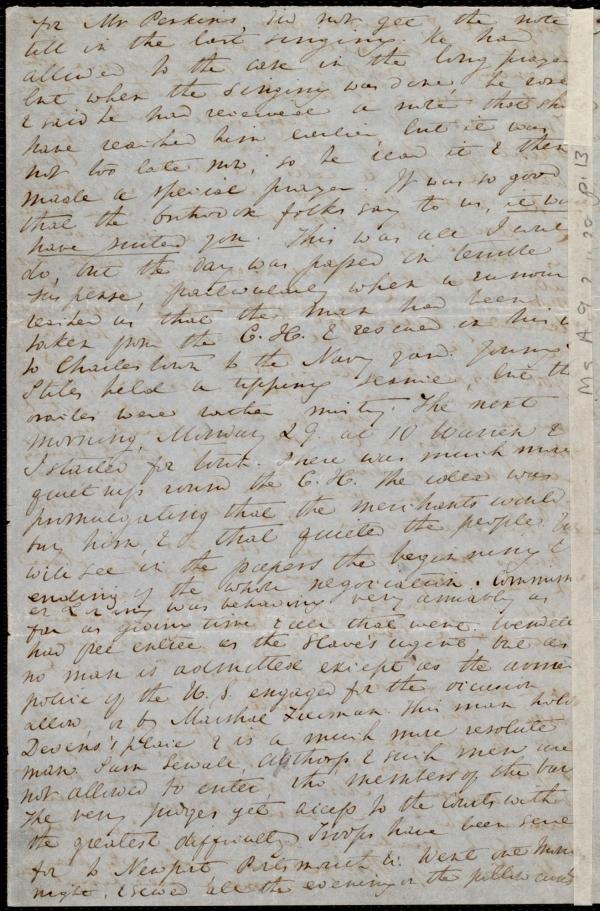 for Mr Perkins, did not get the note
till in the last singing. He had
allowed to the case in the long prayer
but when the singing was done, he rose
& said he had received a note that sh
have reached him earlier, but it was
not too late now, so he read it & then
made a special prayer. It was so good
that the orthodox folks say to us, it wd
have suited you. This was all I could
do, but the day was passed in terrible
suspense, particularly when a rumour
reached us that the man had been
taken from the C.H. & rescued in his
to Charlestown to the Navy yard. Young
Stiles held a tipping seance, but the
were rather misty. The next
morning, Monday 29 at 10 Warren &
I started for town. There was much more
quietness round the C.H. The idea was
promulgating that the merchants would
buy him, & that quieted the people. You
will see in the papers the beginning &
ending of the whole negociation. Commission
er Loring was behaving very amiably as
far as giving time & all that went. Wendell
had free entree as the slave's agent, but as
no man is admitted except as the armed
police of the U.S. engaged for the occasion
allow, or by Marshal Freeman. This man holds
Devens's place & is a much more resolute
man. Sam Sewall, & such men are
not allowed to enter, tho members of the bar
The very judges get access to the Courts with
the greatest difficulty. Troops have been sent
for to Newport Portsmouth &c. Went one Mon
night. Sewed all the evening on the pillow cases
Ms A 9 2 20 p. 13